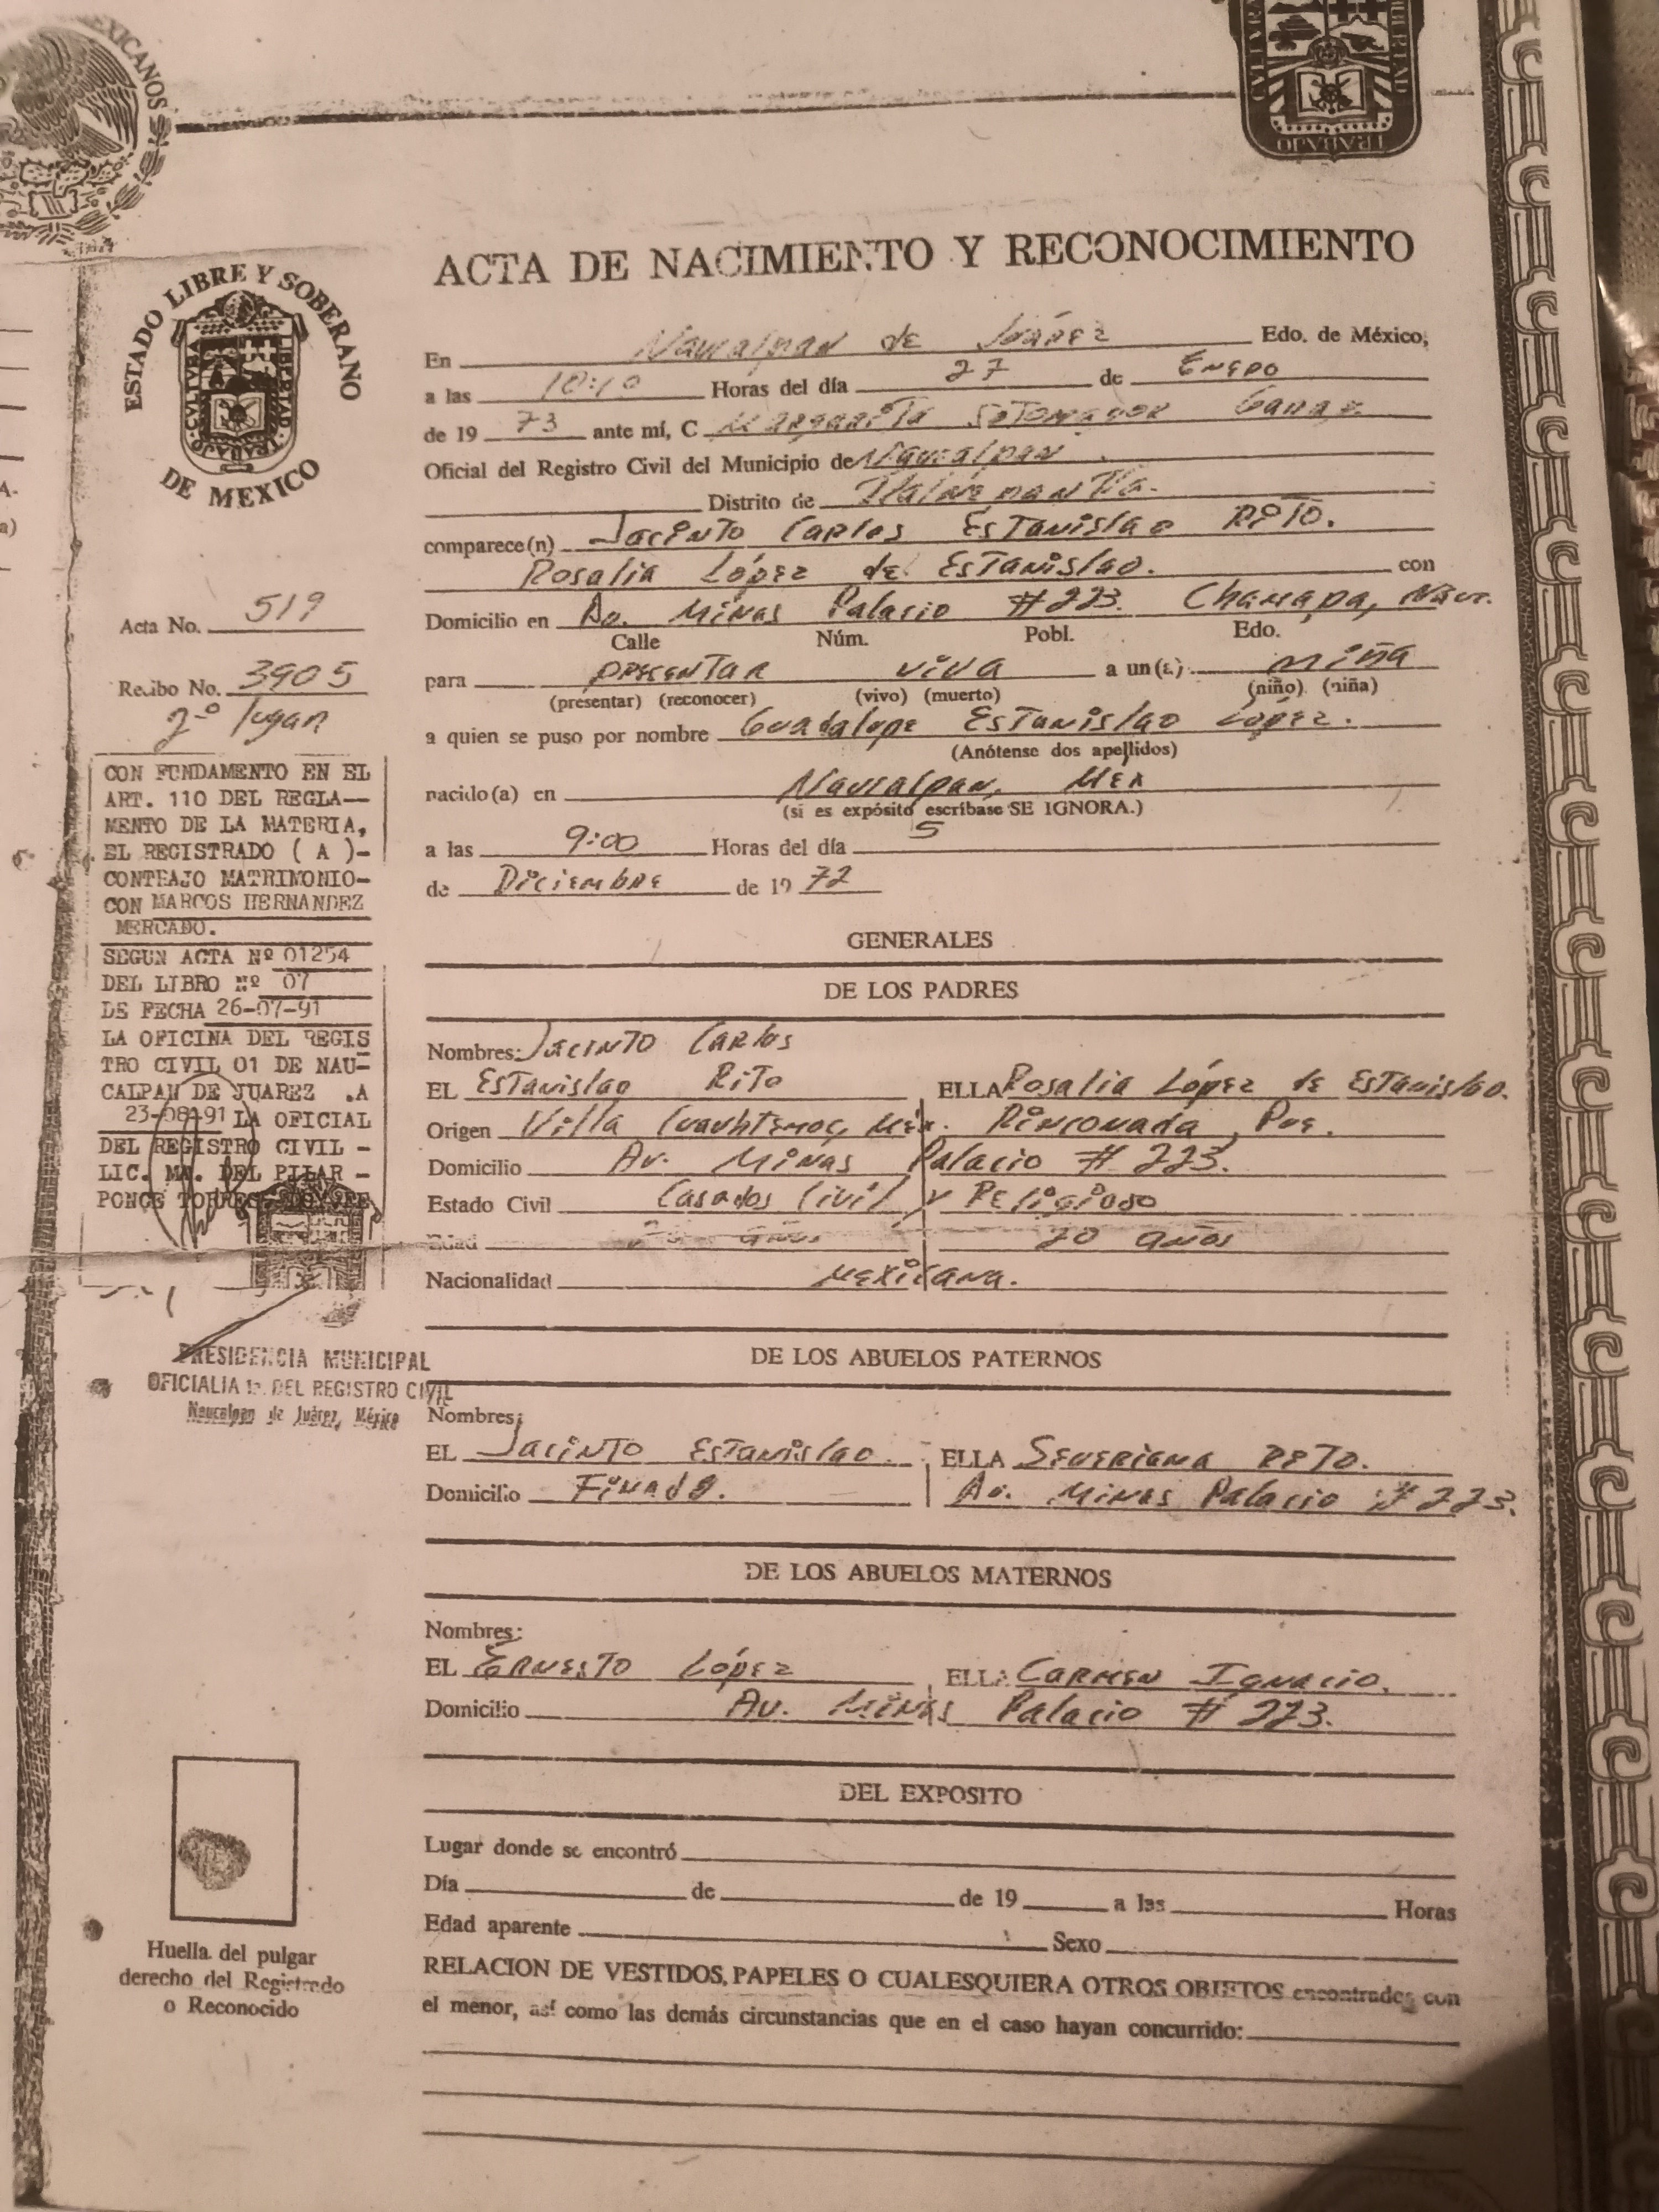 MEXICANOS
CULTURA LIBERTAD
TRABAJO
ACTA DE NACIMIENTO Y RECONOCIMIENTO
ESTADO LIBRE Y SOBERANO
CULTURA LIBERTAD
TRABAJO
DE MEXICO
En Naucalpan de Juárez Edo. de México,
a las 10:10 Horas del día 27 de Enero
de 19 73 ante mí, C Margarita Sotomayor
Oficial del Registro Civil del Municipio de Naucalpan.
Distrito de Tlalnepantla.
comparece(n) Jacinto Carlos Estanislao Rito.
Rosalia López de Estanislao. con
Domicilio en Av. Minas Palacio #223. Chamapa, Nauc.
Calle Núm. Pobl. Edo.
para presentar viva a un(a) niña
(presentar) (reconocer) (vivo) (muerto) (niño) (niña)
a quien se puso por nombre Guadalupe Estanislao López.
(Anótense dos apellidos)
nacido(a) en Naucalpan, Mex
(si es expósito escríbase SE IGNORA.)
a las 9:00 Horas del día 5
de Diciembre de 19 72
Acta No. 519
Recibo No. 3905
2-o lugar
CON FUNDAMENTO EN EL
ART. 110 DEL REGLA—
MENTO DE LA MATERIA,
EL REGISTRADO ( A )-
CONTRAJO MATRIMONIO-
CON MARCOS HERNANDEZ
MERCADO.
SEGUN ACTA Nº 01254
DEL LIBRO Nº 07
DE FECHA 26-07-91
LA OFICINA DEL REGIS
TRO CIVIL 01 DE NAU-
CALPAN DE JUAREZ .A
23-08-91 LA OFICIAL
DEL REGISTRO CIVIL -
LIC. MA. DEL PILAR -
PONCE
GENERALES
DE LOS PADRES
Nombres: Jacinto Carlos
EL Estanislao Rito ELLA Rosalia López de Estanislao.
Origen Villa Cuauhtemoc, Méx. Rinconada, Pue.
Domicilio Av. Minas Palacio # 223.
Estado Civil Casados Civil y Religioso
Edad años 20 años
Nacionalidad Mexicana.
PRESIDENCIA MUNICIPAL
OFICIALIA 1a. DEL REGISTRO CIVIL
Naucalpan de Juárez, México
DE LOS ABUELOS PATERNOS
Nombres:
EL Jacinto Estanislao. ELLA Severiana Rito.
Domicilio Finado. Av. Minas Palacio # 223.
DE LOS ABUELOS MATERNOS
Nombres:
EL Ernesto López ELLA Carmen Ignacio.
Domicilio Av. Minas Palacio # 223.
DEL EXPOSITO
Lugar donde se encontró
Día de de 19 a las Horas
Edad aparente Sexo
RELACION DE VESTIDOS, PAPELES O CUALESQUIERA OTROS OBJETOS encontrados con
el menor, así como las demás circunstancias que en el caso hayan concurrido:
Huella del pulgar
derecho del Registrado
o Reconocido